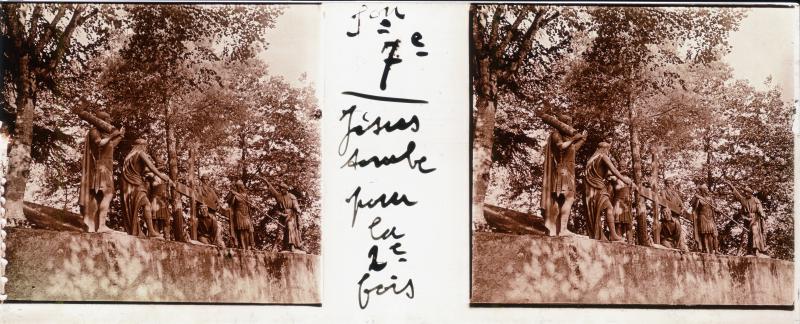 Son
7e
Jésus
tombe
pour
la
2e
fois